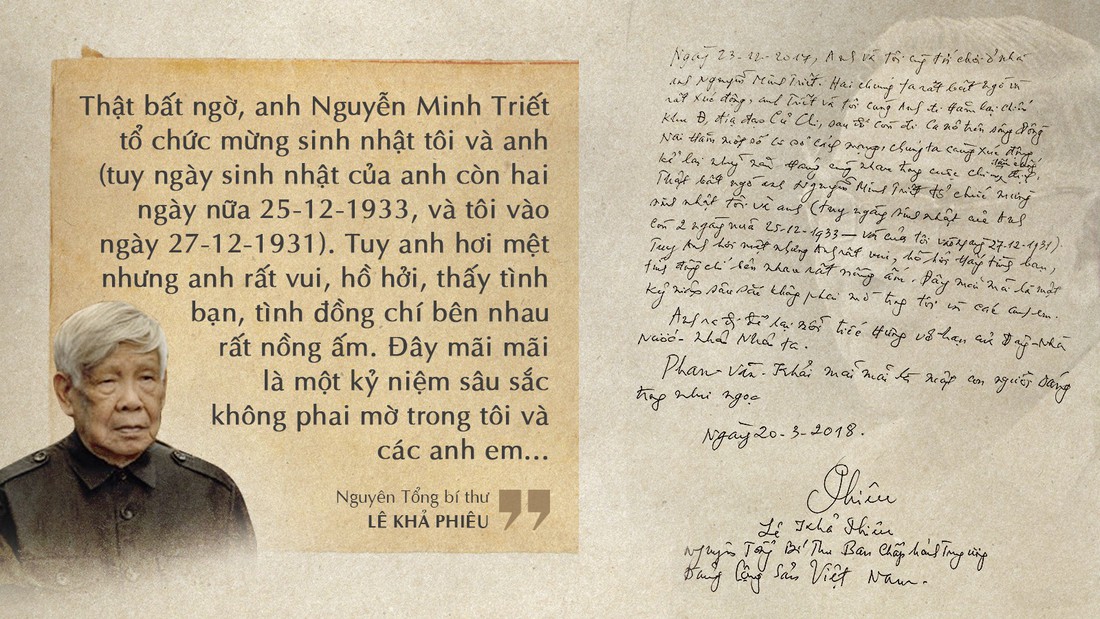 Thật bất ngờ, anh Nguyễn Minh Triết
tổ chức mừng sinh nhật tôi và anh
(tuy ngày sinh nhật của anh còn hai
ngày nữa 25-12-1933, và tôi vào
ngày 27-12-1931). Tuy anh hơi mệt
nhưng anh rất vui, hồ hởi, thấy tình
bạn, tình đồng chí bên nhau
rất nồng ấm. Đây mãi mãi
là một kỷ niệm sâu sắc
không phai mờ trong tôi và
các anh em...
Nguyên Tổng bí thư
LÊ KHẢ PHIÊU
Ngày 23-12-2017, Anh và tôi cùng tới chơi ở nhà
anh Nguyễn Minh Triết. Hai chúng ta rất bất ngờ và
rất xúc động, anh Triết và tôi cùng Anh đi thăm lại chiến
khu Đ, địa đạo Củ Chi, sau đó còn đi ca nô trên sông Đồng
Nai thăm một số cơ sở cách mạng, chúng ta càng xúc động
kể lại những năm tháng cùng nhau trong cuộc
Thật bất ngờ anh Nguyễn Minh Triết tổ chức mừng
sinh nhật tôi và anh (tuy ngày sinh nhật của Anh
còn 2 ngày nữa 25-12-1933 – và của tôi vào ngày 27-12-1931).
Tuy Anh hơi mệt nhưng Anh rất vui, hồ hởi thấy tình bạn,
tình đồng chí bên nhau rất nồng ấm. Đây mãi mãi là một
kỷ niệm sâu sắc không phai mờ trong tôi và các anh em.
Anh ra đi để lại nỗi tiếc thương vô hạn của Đảng - Nhà
Nước - Nhân dân ta.
Phan - Văn - Khải mãi mãi là một con người đáng
trọng như ngọc
Ngày 20-3-2018.
Phiêu
Lê Khả Phiêu
Nguyên Tổng Bí Thư Ban Chấp hành Trung ương
Đảng Cộng Sản Việt Nam.